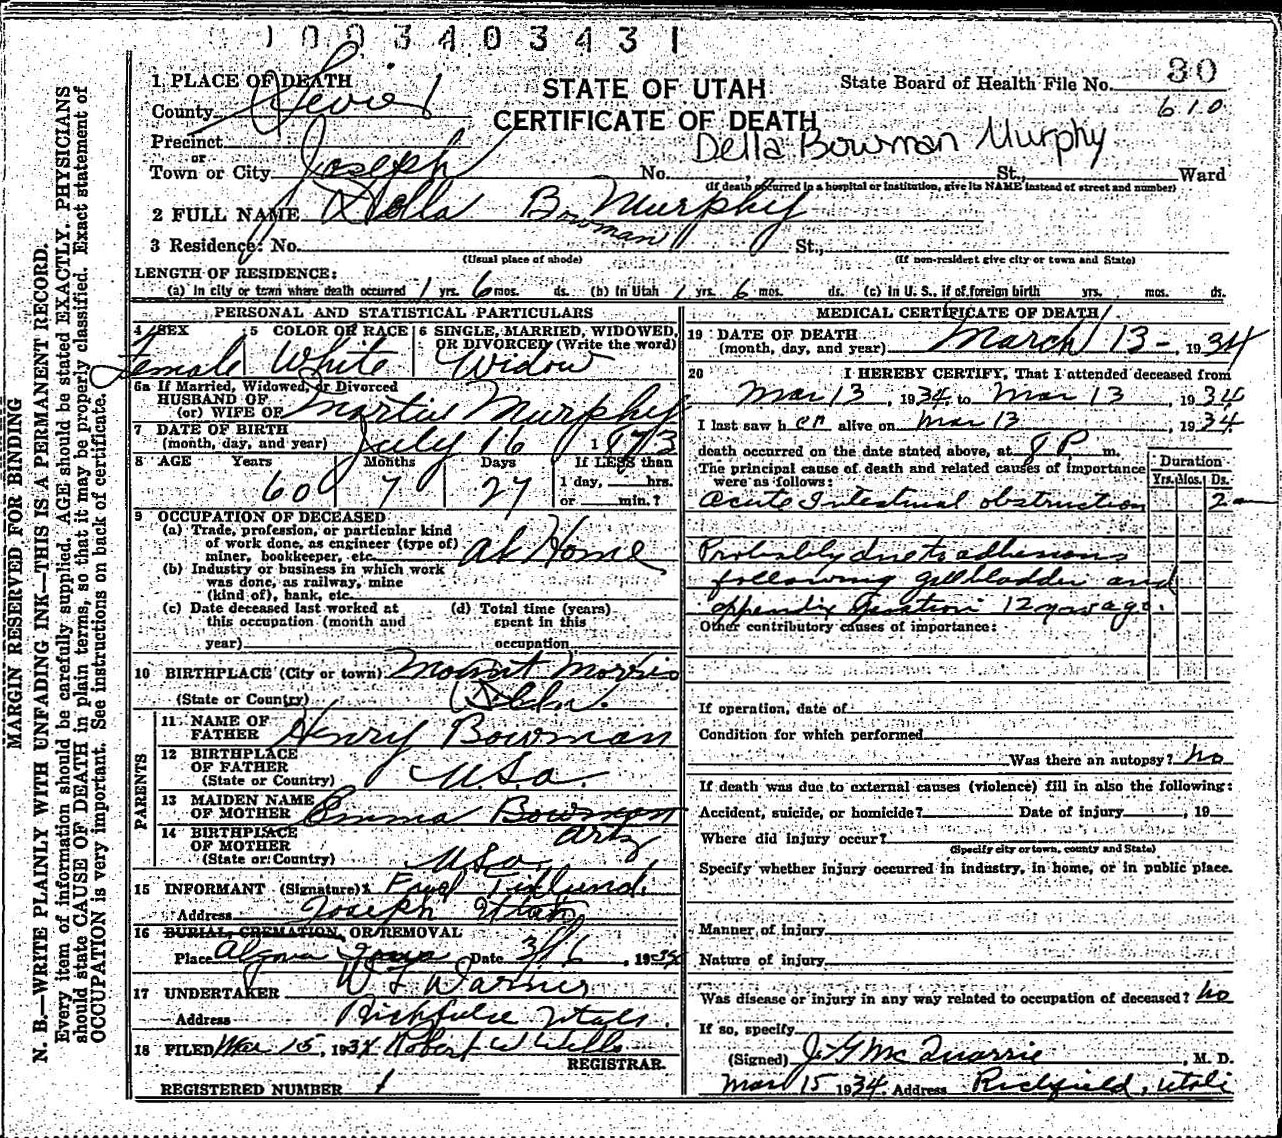 1 0 0 3 4 0 3 4 3 1
MARGIN RESERVED FOR BINDING
N. B.—WRITE PLAINLY WITH UNFADING INK—THIS IS A PERMANENT RECORD.
Every item of information should be carefully supplied. AGE should be stated EXACTLY. PHYSICIANS
should state CAUSE OF DEATH in plain terms, so that it may be properly classified. Exact statement of
OCCUPATION is very important. See instructions on back of certificate.
1 PLACE OF DEATH
County Sevier
Precinct
or
Town or City Joseph
STATE OF UTAH
CERTIFICATE OF DEATH
State Board of Health File No. 30
610
Della Bowman Murphy
No. St., Ward
(If death occurred in a hospital or institution, give its NAME instead of street and number)
2 FULL NAME Della Bowman Murphy
3 Residence: No. St.,
(Usual place of abode) (If non-resident give city or town and State)
LENGTH OF RESIDENCE:
(a) In city or town where death occurred 1 yrs. 6 mos. ds. (b) In Utah 1 yrs. 6 mos. ds. (c) In U. S., if of foreign birth yrs. mos. ds.
PERSONAL AND STATISTICAL PARTICULARS
4 SEX 5 COLOR OR RACE 6 SINGLE, MARRIED, WIDOWED,
OR DIVORCED (Write the word)
Female White Widow
6a If Married, Widowed, or Divorced
HUSBAND OF
(or) WIFE OF Martin Murphy
7 DATE OF BIRTH
(month, day, and year) July 16 1873
8 AGE Years Months Days If LESS than
1 day, hrs.
or min.?
60 7 27
9 OCCUPATION OF DECEASED
(a) Trade, profession, or particular kind
of work done, as engineer (type of)
miner, bookkeeper, etc. at Home
(b) Industry or business in which work
was done, as railway, mine
(kind of), bank, etc.
(c) Date deceased last worked at
this occupation (month and
year)
(d) Total time (years)
spent in this
occupation
10 BIRTHPLACE (City or town) Mount Morris
(State or Country)
PARENTS
11 NAME OF
FATHER Henry Bowman
12 BIRTHPLACE
OF FATHER
(State or Country) U.S.a.
13 MAIDEN NAME
OF MOTHER Emma Bowman
Artz
14 BIRTHPLACE
OF MOTHER
(State or Country) U.S.a.
15 INFORMANT (Signature)
Address Joseph Utah
16 BURIAL, CREMATION, OR REMOVAL
Place Algona Iowa Date 3/6, 1934
17 UNDERTAKER
Address Richfield Utah.
18 FILED Mar 15, 1934 Robert W Wells
REGISTRAR.
REGISTERED NUMBER 1
MEDICAL CERTIFICATE OF DEATH
19 DATE OF DEATH
(month, day, and year) March 13 - , 1934
20 I HEREBY CERTIFY, That I attended deceased from
Mar 13, 1934, to Mar 13, 1934
I last saw h er alive on Mar 13, 1934.
death occurred on the date stated above, at 8 P. m.
The principal cause of death and related causes of importance
were as follows:
Duration
Yrs. Mos. Ds.
Acute Intestinal obstruction 2
Probably due to adhesions
following gallbladder and
appendix operation 12 yrs ago.
Other contributory causes of importance:
If operation, date of
Condition for which performed
Was there an autopsy? no
If death was due to external causes (violence) fill in also the following:
Accident, suicide, or homicide? Date of injury , 19
Where did injury occur?
(Specify city or town, county and State)
Specify whether injury occurred in industry, in home, or in public place.
Manner of injury
Nature of injury
Was disease or injury in any way related to occupation of deceased? no
If so, specify
(Signed) J. G McQuarrie, M. D.
Mar 15 1934, Address Richfield, Utah